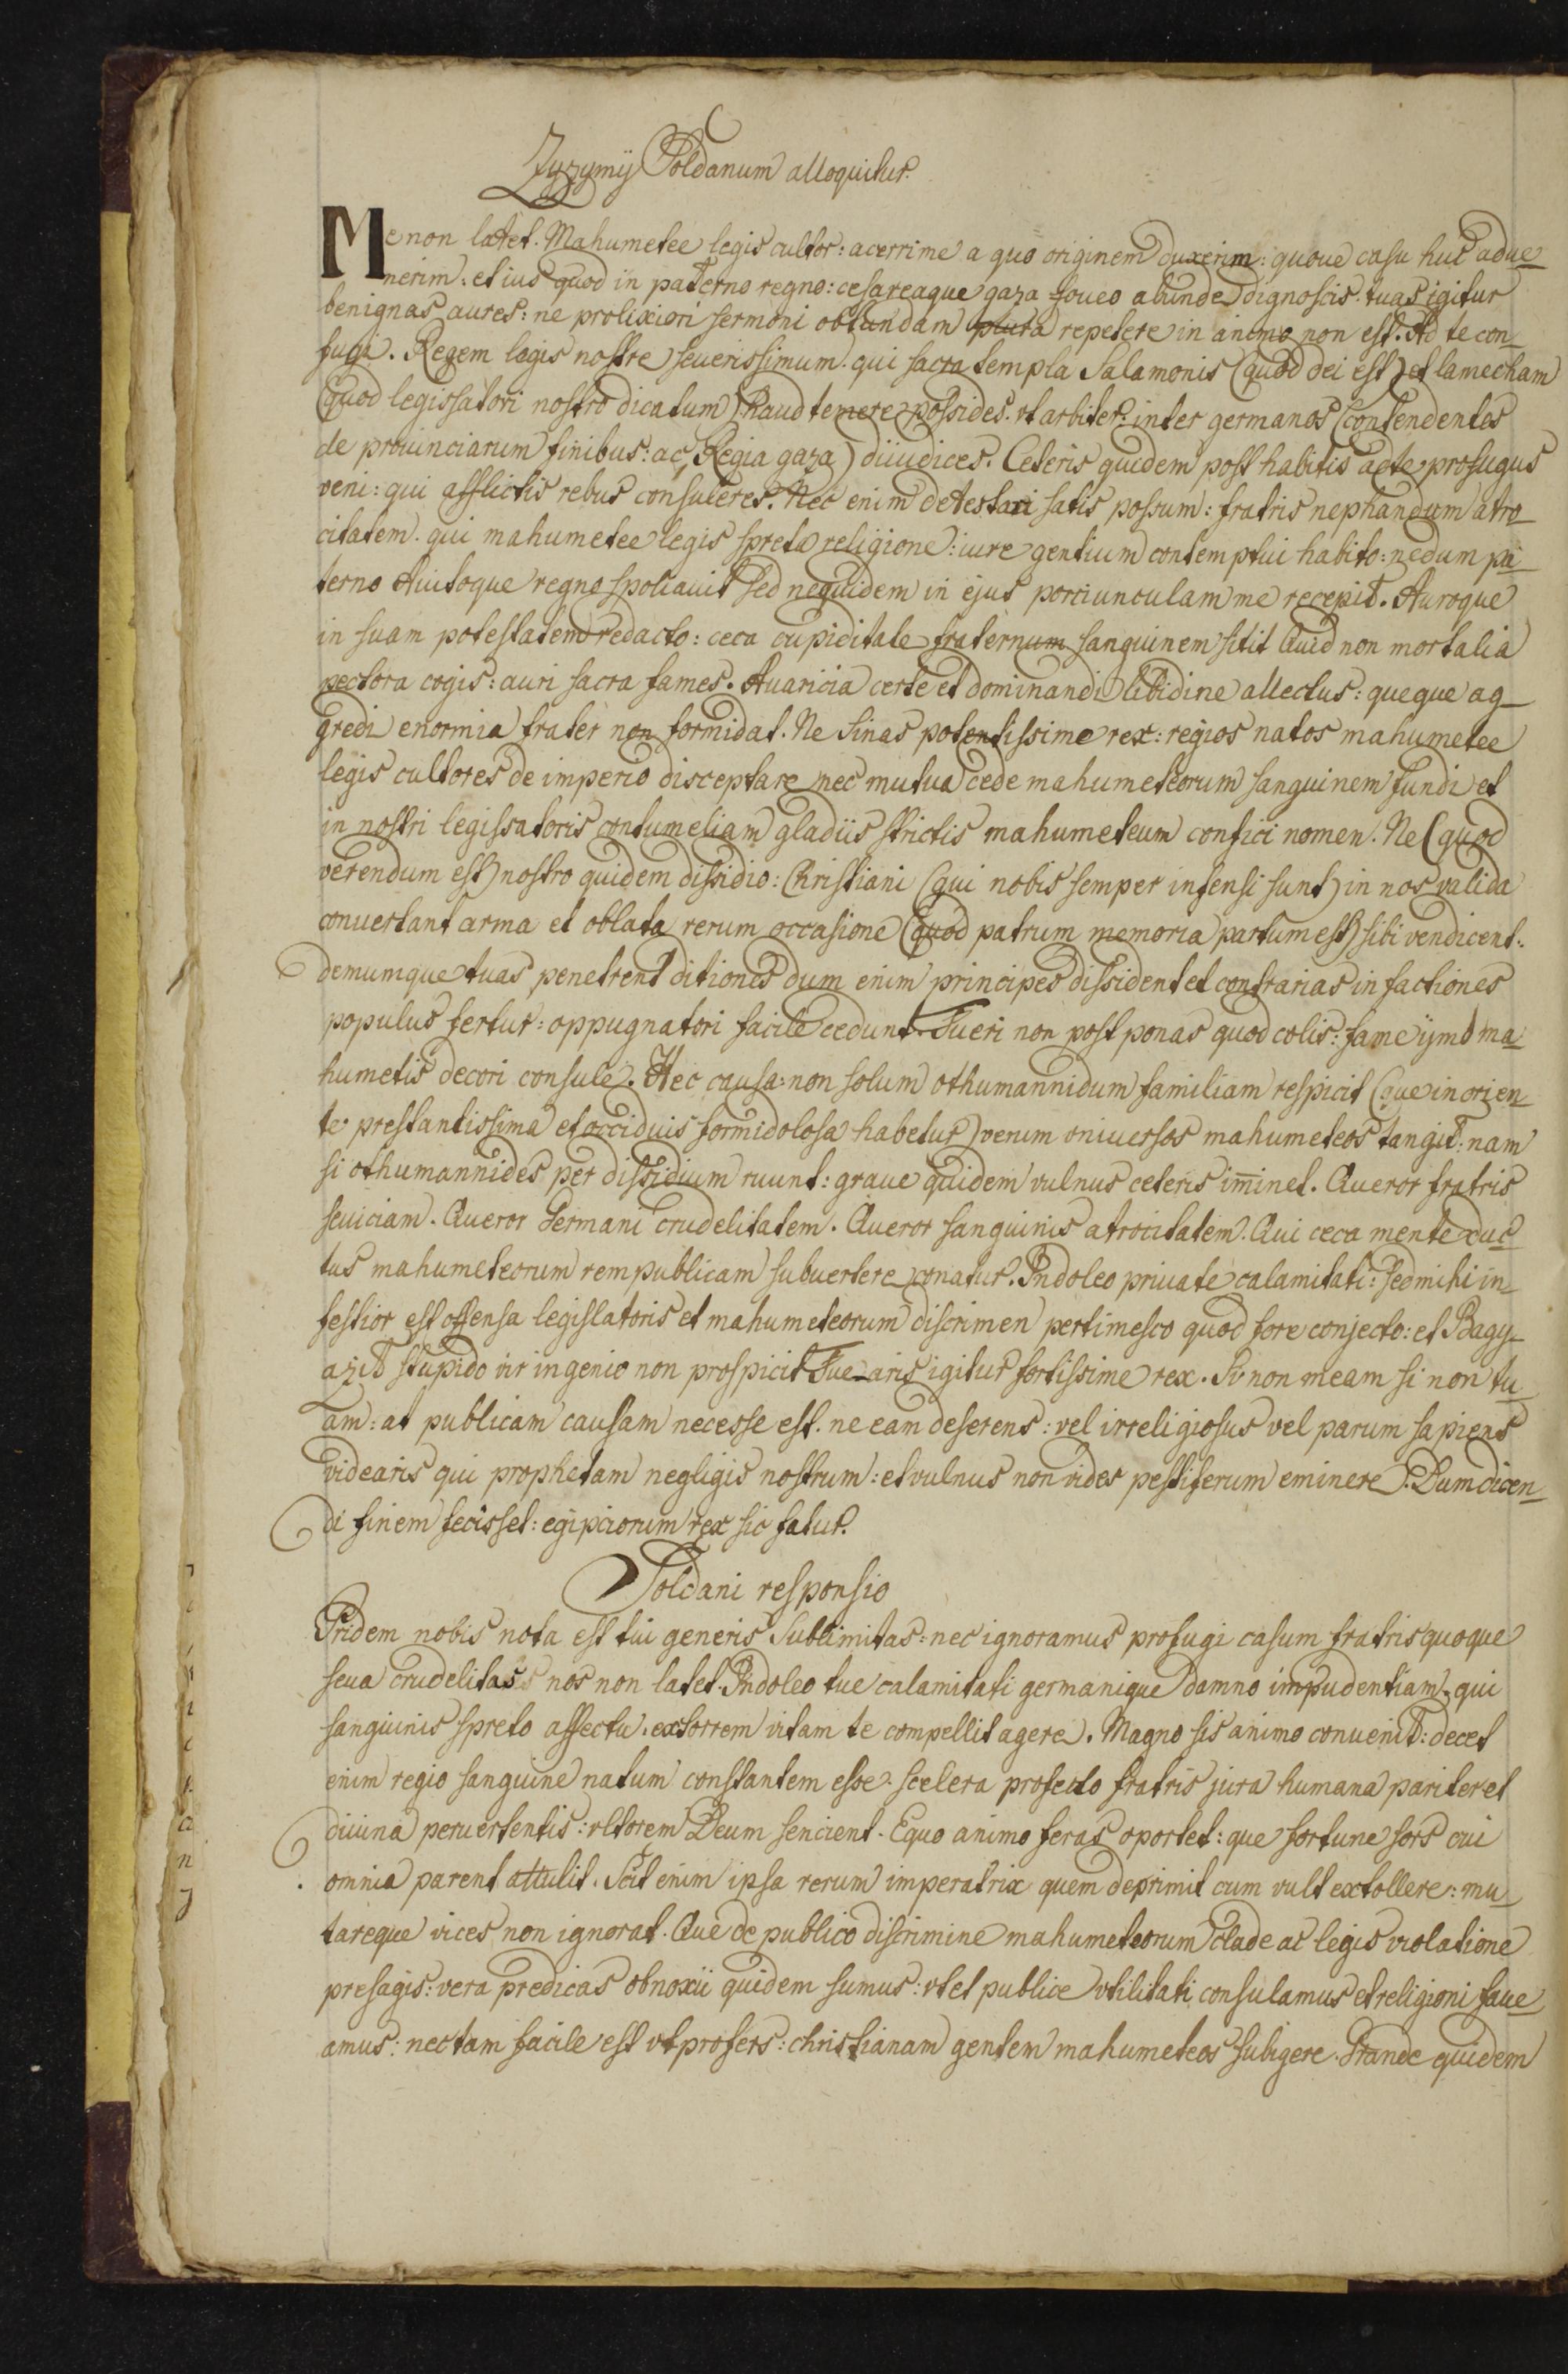 Zyzymij Soldanum alloquitur.
Me non latet. Mahumetee legis cultor: acerrime a quo originem duxerim: quoue casu huc adue_
nerim: et ius quod in paterno regno: cesareaque gaza foueo abunde dignoscis. tuas igitur
benignas aures: ne prolixiori sermoni obtundam plura repetere in animo non est. Ad te con_
fugi. Regem legis nostre seuerissimum. qui sacra templa Salamonis (quod dei est) et lamecham
(quod legissatori nostro dicatum) haud temere possides. vt arbiter: inter germanos contendentes
de prouinciarum finibus: ac Regia gaza) diiudices. Ceteris quidem post habitis ad te profugus
veni: qui afflictis rebus consuleres. Nec enim detestari satis possum: fratris nephandum atro_
citatem. qui mahumetee legis spreta religione: iure gentium contemptui habito: nedum pa_
terno Auitoque regno spoliauit sed nequidem in ejus porciunculam me recepit. Auroque
in suam potestatem redacto: ceca cupiditate fraternum sanguinem sitit Quid non mortalia
pectora cogis: auri sacra fames. Auaricia certe et dominandi libidine allectus: queque ag_
gredi enormia frater non formidat. Ne Sinas potentissime rex: regios natos mahumetee
legis cultores de imperio disceptare nec mutua cede mahumeteorum sanguinem fundi et
in nostri legissatoris contumeliam gladiis strictis mahumeteum confici nomen. Ne (quod
verendum est) nostro quidem dissidio: Christiani (qui nobis semper infensi sunt) in nos valida
conuertant arma et oblata rerum occasione (quod patrum memoria partum est) sibi vendicent:
demumque tuas penetrent ditiones dum enim principes dissident et contrarias in factiones
populus fertur: oppugnatori facile cedunt. Tueri non post ponas quod colis: fame ijmo ma_
humetis decori consule. Hec causa: non solum othumannidum familiam respicit (que in orien_
te prestantissima et occiduis formidolosa habetur) verum vniuersos mahumeteos tangit: nam
si othumannides per dissidium ruunt: graue quidem vulnus ceteris im̅inet. Queror fratris
seuiciam. Queror Germani crudelitatem. Queror sanguinis atrocitatem. Qui ceca mente duc_
tus mahumeteorum rempublicam subuertere conatur. Indoleo priuate calamitati: sed mihi in_
festior est offensa legislatoris et mahumeteorum discrimen pertimesco quod fore conjecto: et Bagy_
azit stupido vir ingenio non prospicit Tue_aris igitur fortissime rex. Si non meam si non tu_
am: at publicam causam necesse est. ne eam deserens: vel irreligiosus vel parum sapiens
videaris qui prophetam negligis nostrum: et vulnus non vides pestiferum eminere. Dum dicen_
di finem fecisset: egipciorum rex sic fatur.
Soldani responsio
Pridem nobis nota est tui generis Sublimitas: nec ignoramus profugi casum fratris quoque
seua crudelitass nos non latet. Indoleo tue calamitati germanique damno impudentiam, qui
sanguinis spreto affectu. extorrem vitam te compellit agere. Magno sis animo conuenit: decet
enim regio sanguine natum constantem esse. scelera profecto fratris jura humana pariter et
diuina peruertentis: vltorem Deum sencient. Equo animo feras oportet: que fortune sors cui
omnia parent attulit. Scit enim ipsa rerum imperatrix quem deprimit cum vult extollere: mu_
tareque vices non ignorat. Que de publico discrimine mahumeteorum clade ac legis violatione
presagis: vera predicas obnoxii quidem sumus: vt et publice vtilitati consulamus et religioni faue_
amus: nec tam facile est vt profers: christianam gentem mahumeteos subigere. Grande quidem